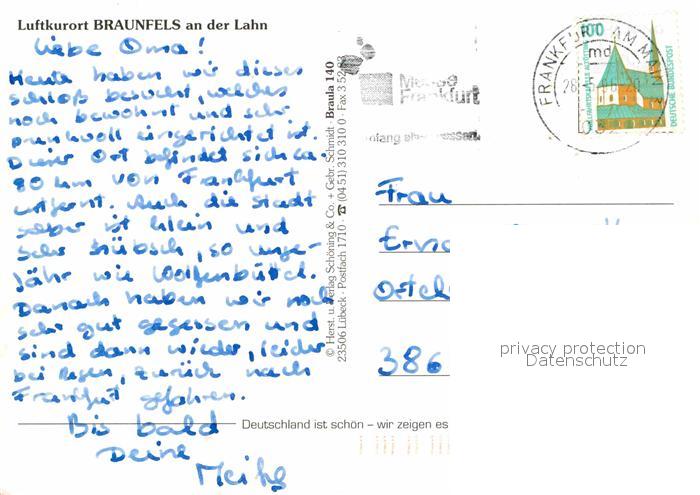 Luftkurort BRAUNFELS an der Lahn
Liebe Oma!
Heute haben wir dieses
Schloß besucht, welches
noch bewohnt und sehr
prunkvoll eingerichtet ist.
Dieser Ort befindet sich ca.
80 km von Frankfurt
entfernt. Auch die Stadt
selber ist klein und
sehr hübsch, so unge-
fähr wie Wolfenbüttel.
Danach haben wir noch
sehr gut gegessen und
sind dann wieder, leider
bei Regen, zurück nach
Frankfurt gefahren.
Bis bald
Deine
© Herst. u. Verlag Schöning & Co. + Gebr. Schmidt Braula 140
23506 Lübeck · Postfach 1710 · ☎ (04 51) 310 310 0 · Fax 3 52
Messe
Frankfurt
FRANKFURT AM MAIN
md
100
DEUTSCHE BUNDESPOST
Frau
386
privacy protection
Datenschutz
Deutschland ist schön – wir zeigen es